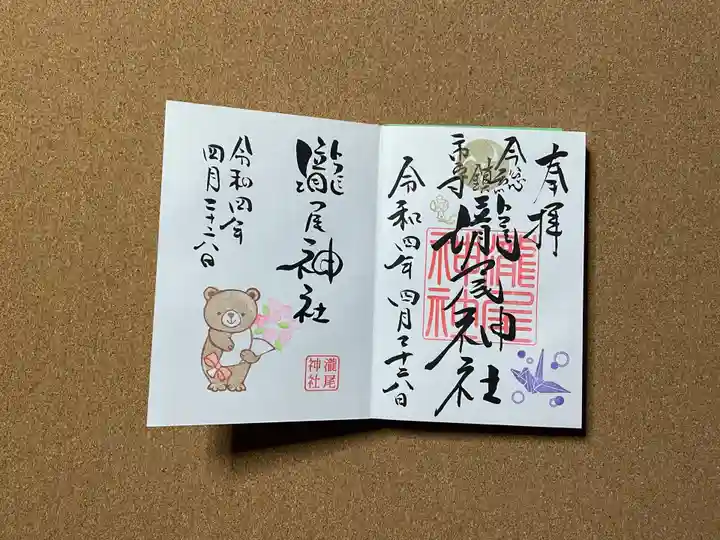 奉拝
瀧尾神社
瀧尾神社
令和四年四月二十八日
瀧尾神社
令和四年
四月二十八日
瀧尾
神社